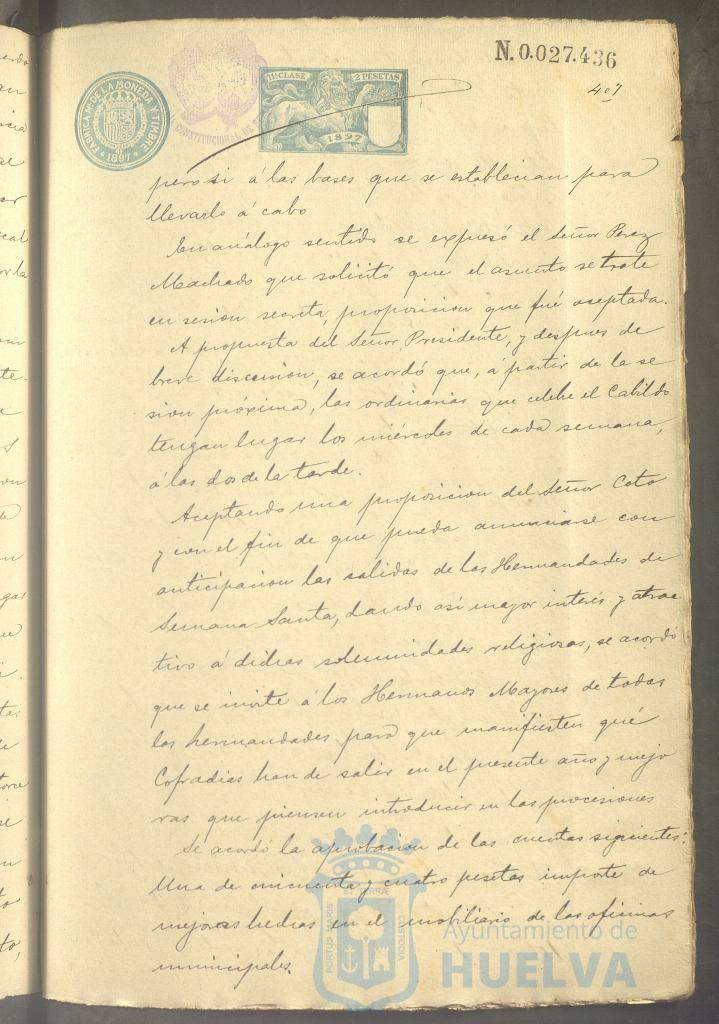 N.0.027.436
407
FABRICA Nal DE LA MONEDA Y TIMBRE
1897
11ª CLASE 2 PESETAS
1897
CONSTITUCIONAL DE
pero si á las bases que se establecian para
llevarlo á cabo
En análogo sentido se expresó el Señor Perez
Machado que solicitó que el asunto se trate
en sesion secreta, proposicion que fué aceptada.
A propuesta del Señor Presidente, y despues de
breve discusion, se acordó que, á partir de la se
sion próxima, las ordinarias que celebre el Cabildo
tengan lugar los miércoles de cada semana,
á las dos de la tarde.
Aceptando una proposicion del Señor Coto
y con el fin de que pueda anunciarse con
anticipacion las salidas de las Hermandades de
Semana Santa, dando asi mayor interés y atrac
tivo á dichas solemnidades religiosas, se acordó
que se invite á los Hermanos Mayores de todas
las hermandades para que manifiesten qué
Cofradias han de salir en el presente año y mejo
ras que piensen introducir en las procesiones
Se acordó la aprobacion de las cuentas siguientes:
Una de cincuenta y cuatro pesetas importe de
mejoras hechas en el mobiliario de las oficinas
municipales.
PORTUS MARIS ET TERRÆ CUSTODIA
Ayuntamiento de
HUELVA